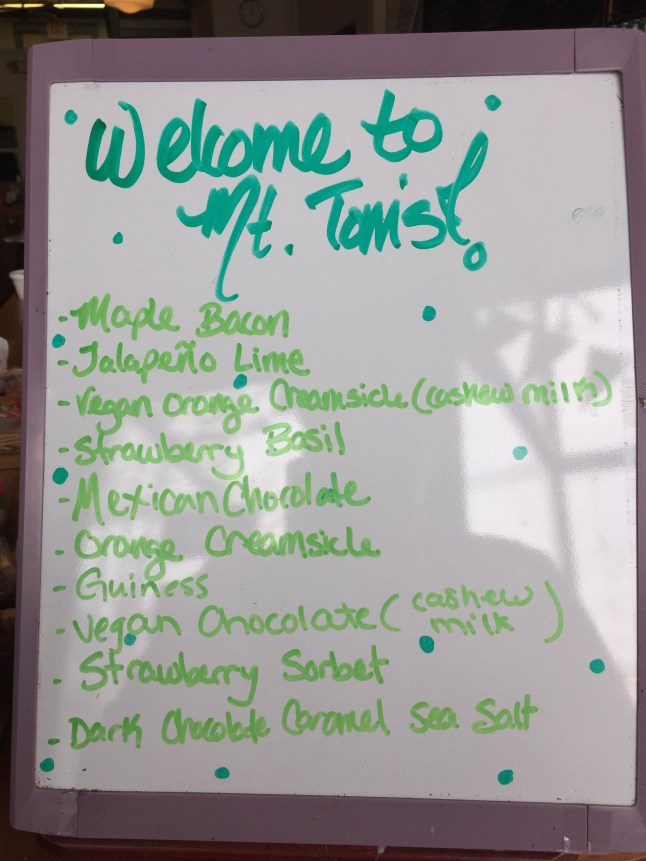 Welcome to
Mt. Tom's!
- Maple Bacon
- Jalapeño Lime
- Vegan Orange Creamsicle (cashew milk)
- Strawberry Basil
- Mexican Chocolate
- Orange Creamsicle
- Guiness
- Vegan Chocolate (cashew milk)
- Strawberry Sorbet
- Dark Chocolate Caramel Sea Salt